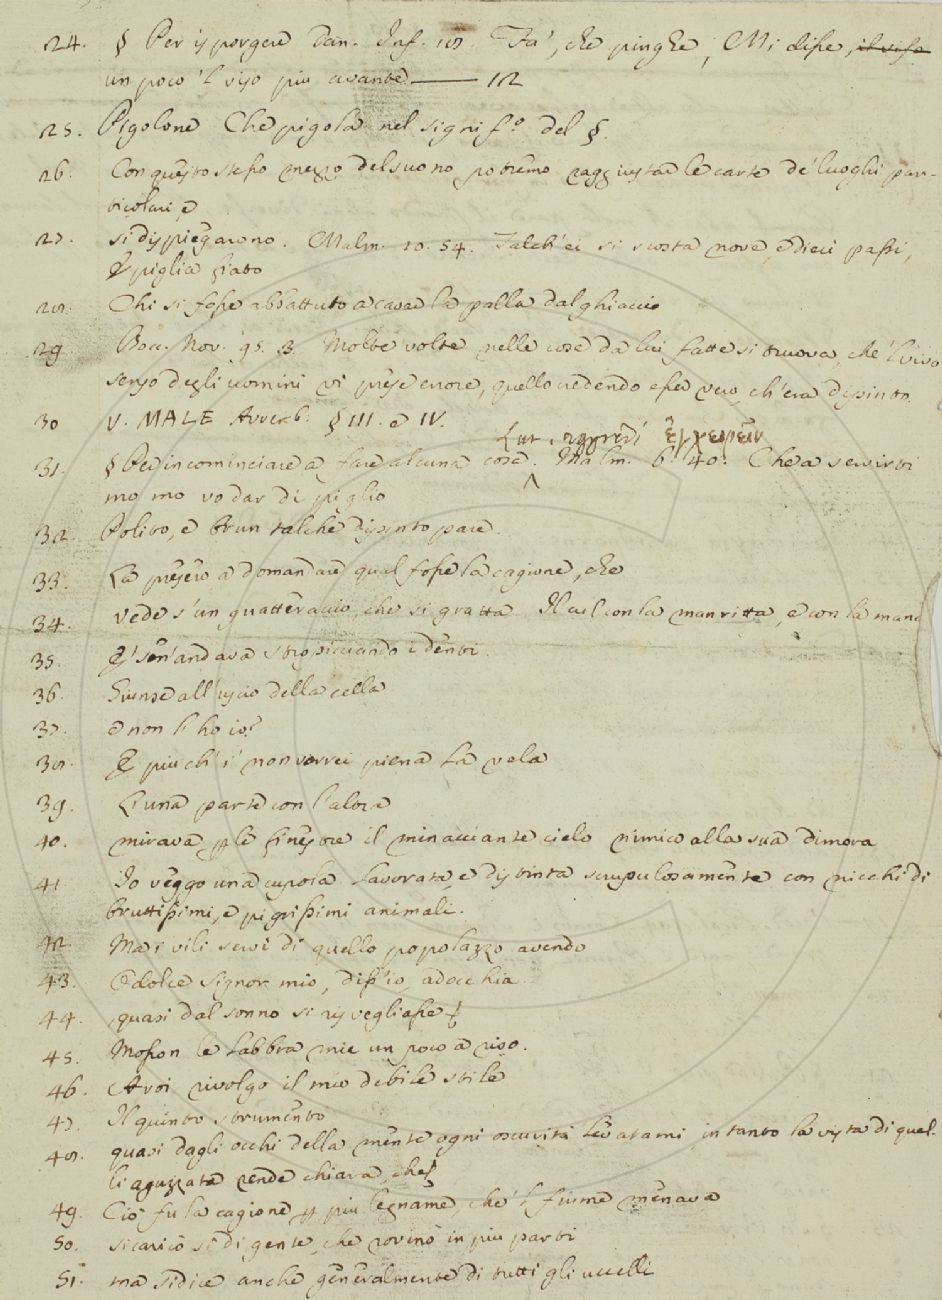 24. § Per isporgere Dan. Inf. 18. Fa', che pinghe, Mi disse, il viso
un poco 'l viso piu avante —— 12
25. Pigolone Che pigola nel signif.º del §.
26. Con questo stesso mezzo del suono potremo raggiustare le carte de' luoghi par-
ticolari, e
27. si dispiegarono. Malm. 10. 54. Talch'ei si scosta nove, e dieci passi,
E piglia fiato
28. Chi si fosse abbattuto a cavar la palla dal ghiaccio
29 Bocc. Nov. 95. 3. Molte volte nelle cose da lui fatte si truova, che 'l viso
senso degli uomini vi prese errore, quello credendo esser vero, ch'era dipinto.
30 V. MALE Avverb. § III. e IV.
Lat. aggredi
31. § Per incominciare a fare alcuna cosa. Malm. 6. 40. Che a servirti
mo mo vo dar di piglio
32. Polito, e brun talchè dipinto pare.
33. La presero a domandare qual fosse la cagione, che
34. vede s'un quattreraccio, che si gratta Il cul con la man ritta, e con la manc
35. E sen'andava stropicciando i denti.
36. Giunse all'uscio della cella
37. e non l'ho io?
38. E più ch'i' non vorrei piena la vela
39. L'una parte con l'altra
40. mirava per le finestre il minacciante cielo nimico alla sua dimora
41 Io veggo una cupola lavorata, e distinta scrupolosamente con nicchi di
bruttissimi, e pigrissimi animali.
42 Ma i vili servi di quello popolazzo avendo
43. O dolce signor mio, diss'io, adocchia.
44. quasi dal sonno si risvegliasse
45. Mosson le labbra mie un poco a riso.
46. A voi rivolgo il mio debile stile
47. Il quinto strumento
48. quasi dagli occhi della mente ogni oscurità levatami, in tanto la vista di quel-
li aguzzata rende chiara, che
49. Ciò fu la cagione per più legname, che 'l fiume menava
50. si caricò sì di gente, che rovinò in più parti
51. ma si dice anche generalmente di tutti gli uccelli